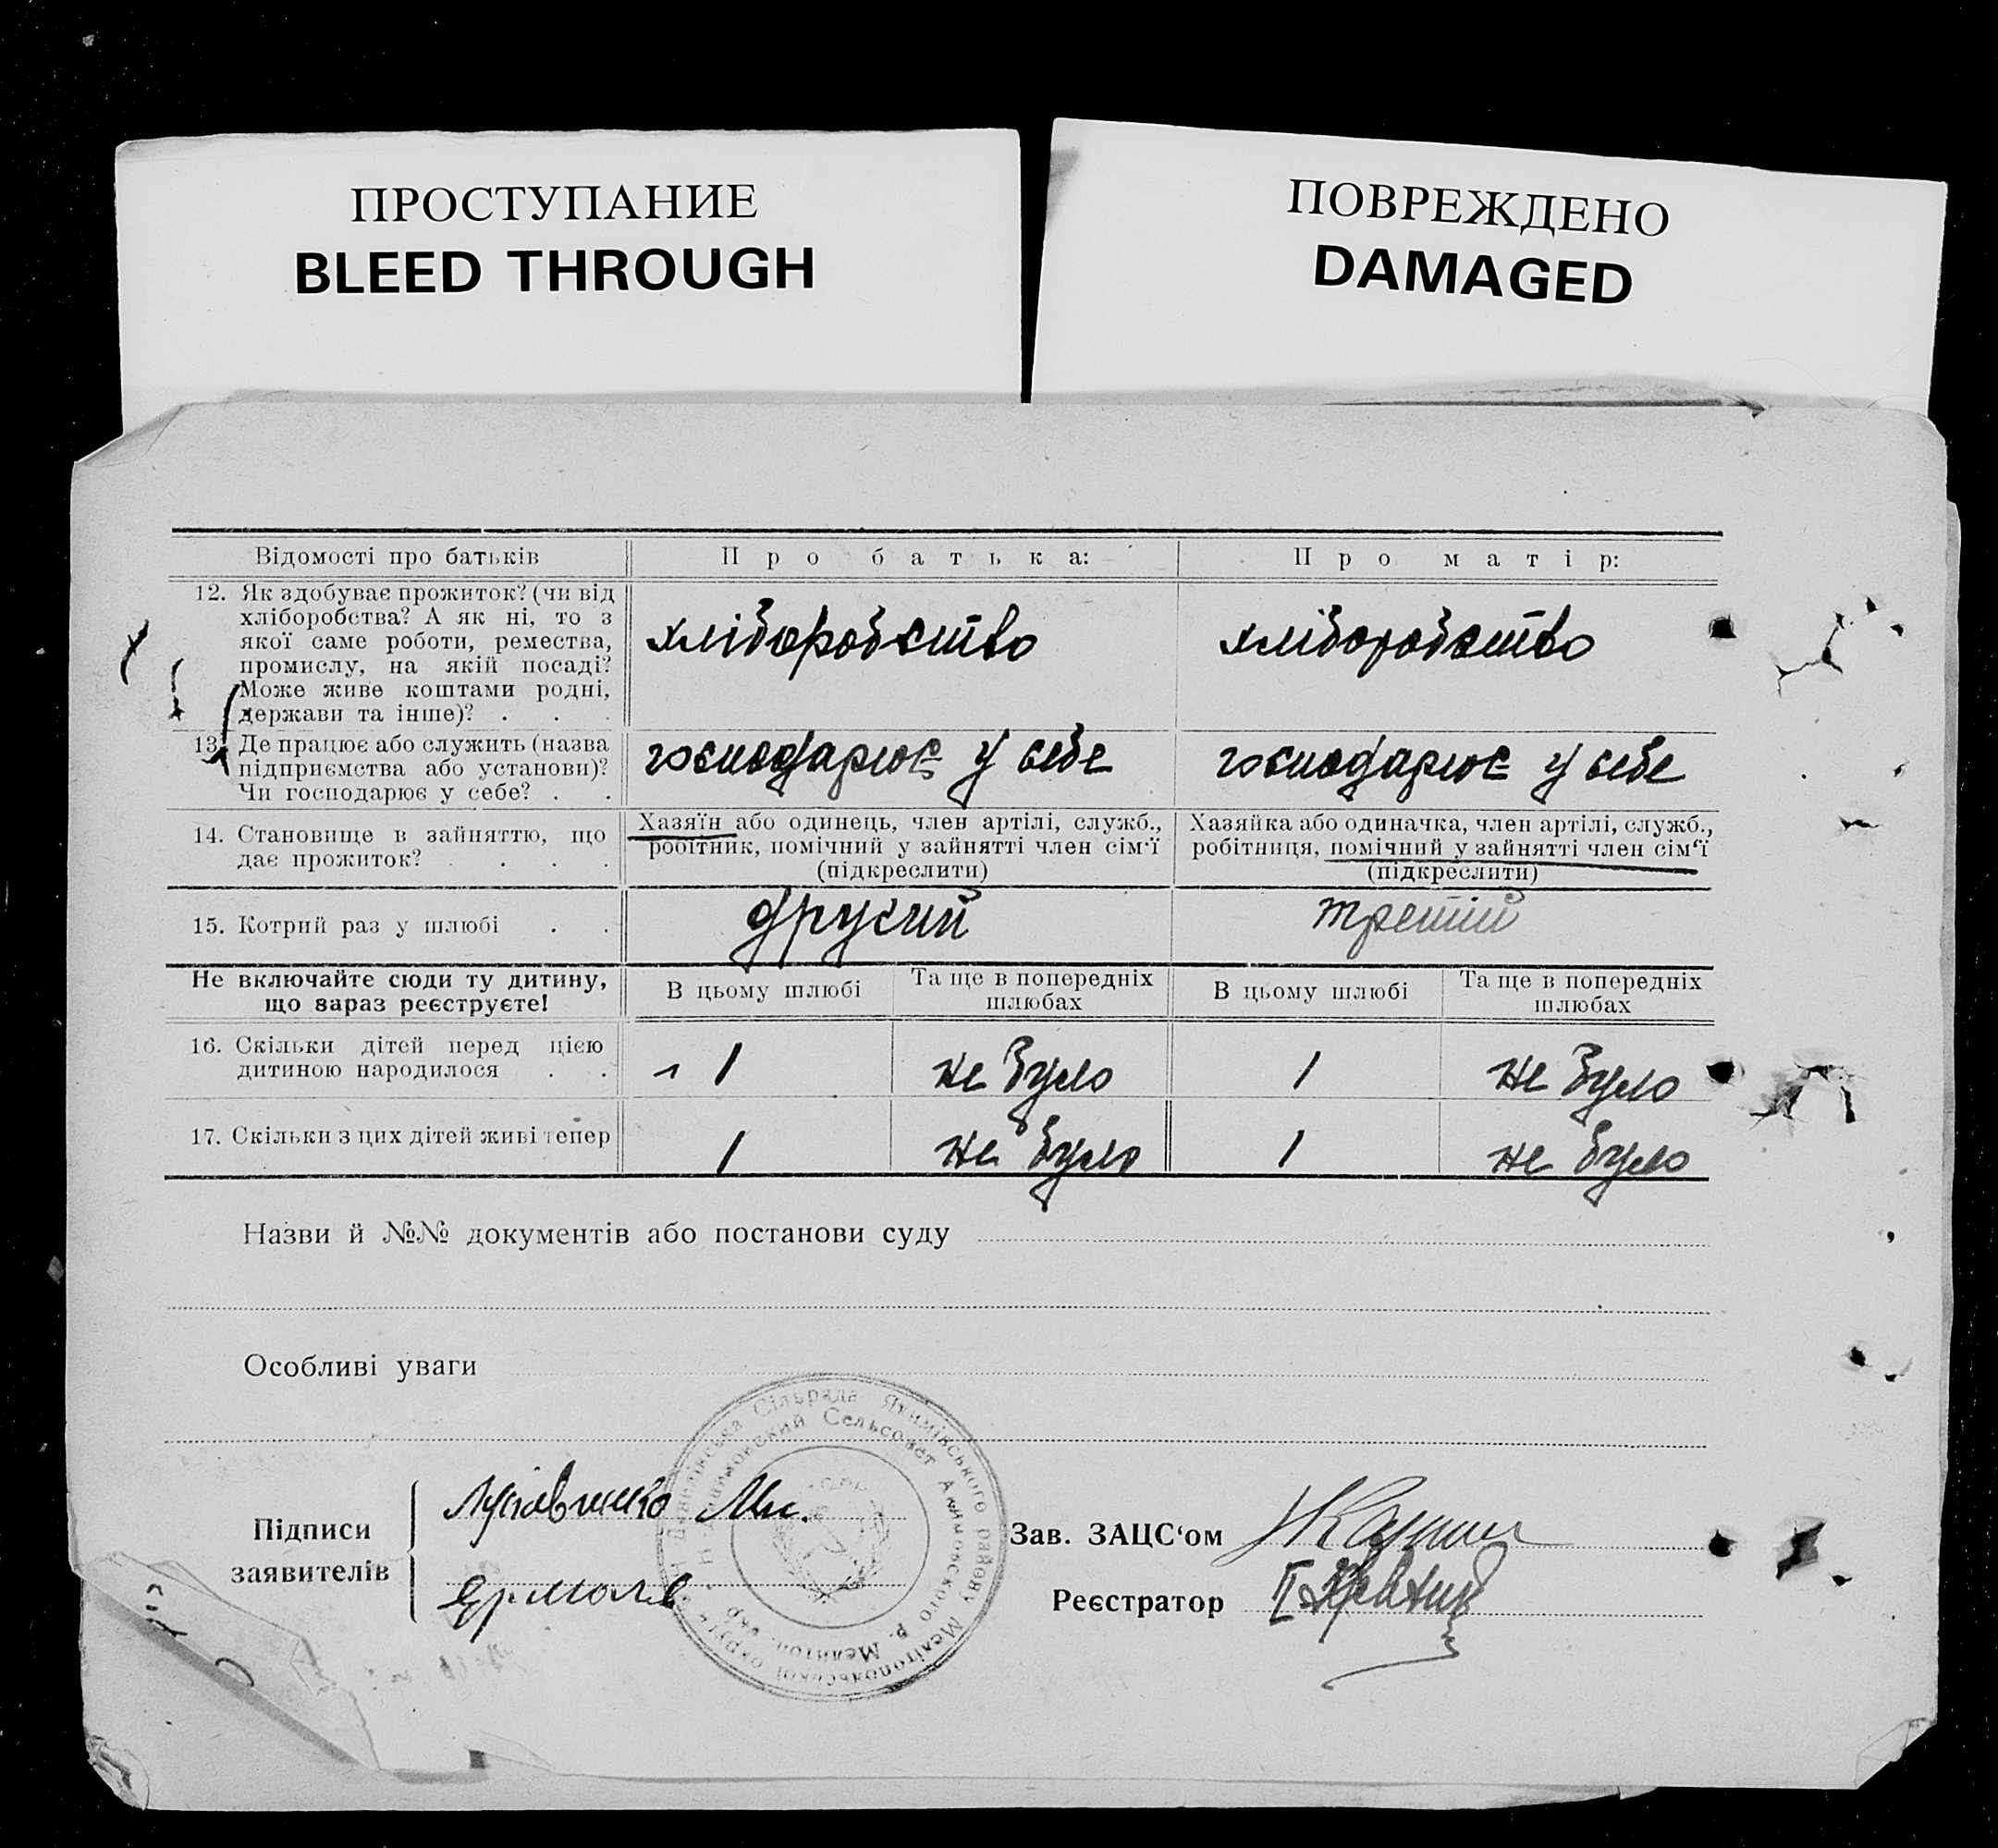 ПРОСТУПАНИЕ
BLEED THROUGH
ПОВРЕЖДЕНО
DAMAGED
Відомості про батьків
Про батька:
Про матір:
12. Як здобуває прожиток? (чи від
хліборобства? А як ні, то з
якої саме роботи, ремества,
промислу, на якій посаді?
Може живе коштами родні,
держави та інше)? . . .
хліборобство
хліборобство
13. Де працює або служить (назва
підприємства або установи)?
Чи господарює у себе? . .
господарює у себе
господарює у себе
14. Становище в зайняттю, що
дає прожиток? . . . .
Хазяїн або одинець, член артілі, служб.,
робітник, помічний у зайнятті член сім'ї
(підкреслити)
Хазяйка або одиначка, член артілі, служб.,
робітниця, помічний у зайнятті член сім'ї
(підкреслити)
15. Котрий раз у шлюбі . .
другий
третій
Не включайте сюди ту дитину,
що зараз реєструєте!
В цьому шлюбі
Та ще в попередніх
шлюбах
В цьому шлюбі
Та ще в попередніх
шлюбах
16. Скільки дітей перед цією
дитиною народилося . .
1
не було
1
не було
17. Скільки з цих дітей живі тепер
1
не було
1
не було
Назви й №№ документів або постанови суду
Особливі уваги
Підписи
заявителів
Ермолев
Зав. ЗАЦС‘ом
Реєстратор
Сільрада Якимівського району Мелітопольської округи
Сельсовет Акимовского р. Мелитоп. окр.